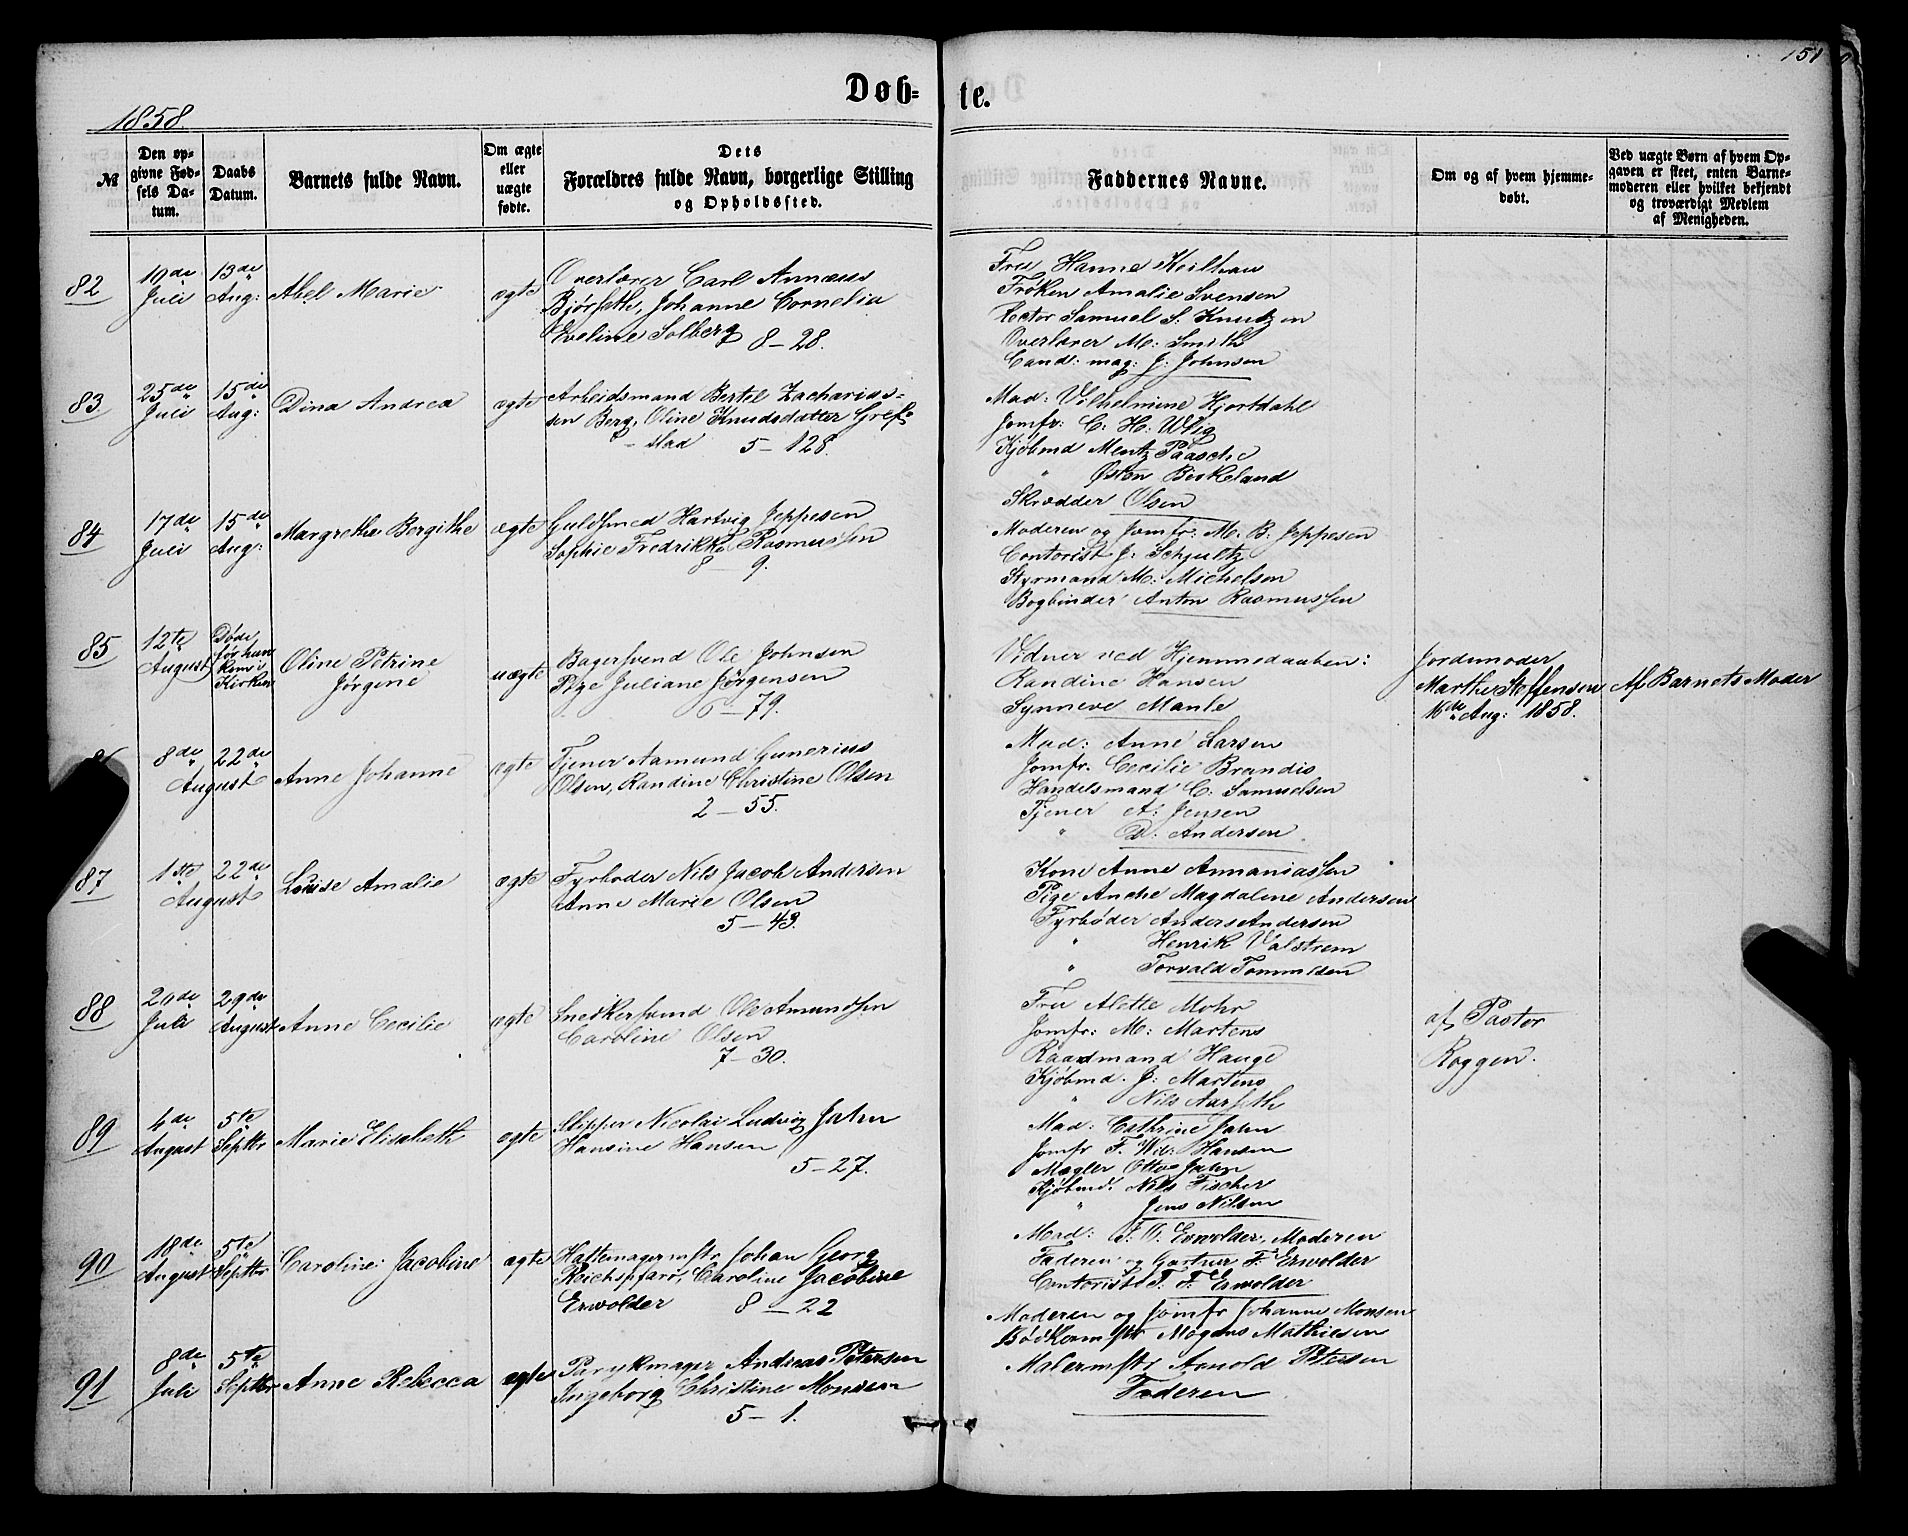 151
Døb=
te.
1858.
№
Den op-
givne Fød-
sels Da-
tum.
Daabs
Datum.
Barnets fulde Navn.
Om ægte
eller
uægte
fødte.
Dets
Forældres fulde Navn, borgerlige Stilling
og Opholdssted.
Faddernes Navne.
Om og af hvem hjemme-
døbt.
Ved uægte Børn af hvem Op-
gaven er skeet, enten Barne-
moderen eller hvilket bekjendt
og troværdigt Medlem
af Menigheden.
82
19de
Juli
13de
Aug:
Abel Marie
ægte
Overlærer Carl Annæus
Bjørseth, Johanne Cornelia
Eveline Solberg
8 – 28.
Fru Hanne Keilhau
Frøken Amalie Svensen
Rector Samuel S. Knutzen
Overlærer M: Smith
Cand: mag: J. Johnsen
83
25de
Juli
15de
Aug:
Dina Andrea
ægte
Arbeidsmand Bertel Zacharias-
sen Berg, Oline Knudsdatter Gref-
stad
5 – 128.
Mad: Vilhelmine Hjortdahl
Jomfr: C. H: Wiig
Kjøbmd Mentz Paasche
" Østen Birkeland
Skrædder Olsen
84
17de
Juli
15de
Aug:
Margrethe Bergithe
ægte
Guldsmed Hartvig Jeppesen
Sophie Fredrikke Rasmussen
8 – 9.
Moderen og Jomfr: M. B. Jeppesen
Contorist J. Schjultz
Styrmand M: Michelsen
Bogbinder Anton Rasmussen
85
12te
August
Døde
før hun
kom i
Kirken
Oline Petrine
Jørgene
uægte
Bagersvend Ole Johnsen
Pige Juliane Jørgensen
6 – 79.
Vidner ved Hjemmedaaben:
Randine Hansen
Synneve Mante
Jordemoder
Marthe Steffensen
16de Aug: 1858.
Af Barnets Moder
8de
August
22de
Anne Johanne
ægte
Tjener Aamund Gunerius
Olsen, Randine Christine Olsen
2 – 55.
Mad: Anne Larsen
Jomfr. Cecilie Brandis
Handelsmand C. Samuelsen
Tjener A: Jensen
" D: Andersen
87
1ste
August
22de
Louise Amalie
ægte
Fyrbøder Nils Jacob Andersen
Anne Marie Olsen
5 – 43.
Kone Anne Annaniassen
Pige Anche Magdalene Andersen
Fyrbøder Anders Andersen
" Henrik Valstrem
" Torvald Tommesen
88
Juli
29de
August
Anne Cecilie
ægte
Snedkersvend Ole Amundsen
Caroline Olsen
7 – 30.
Fru Alette Mohr
Jomfr: M: Martens
Raadmand Hauge
Kjøbmd. J: Martens
" Nils Aarseth
af Pastor
Roggen.
89
4de
August
5te
Septbr
Marie Elisabeth
ægte
Skipper Nicolai Ludvig Jahn
Hansine Hansen
5 – 27.
Mad: Cathrine Jahn
Jomfr F. Wd: Hansen
Mægler Otto Jahn
Kjøbmd. Nils Fischer
" Jens Nilsen
90
18de
August
5te
Septbr
Caroline Jacobine
ægte
Hattemagermstr Johan Georg
Reichspfarr, Caroline Jacobine
Erwolder
8 – 22
Mad: F. O. Erwolder, Moderen
Faderen og Gartner F. Erwolder
Contorist T. F. Erwolder
91
8de
Juli
5te
Septbr
Anne Rebecca
ægte
Parykmager Andreas Petersen
Ingeborg Christine Monsen
5 – 1.
Moderen og Jomfr Johanne Monsen
Bødkermstr Mogens Mathiesen
Malermstr Arnold Petersen
Faderen